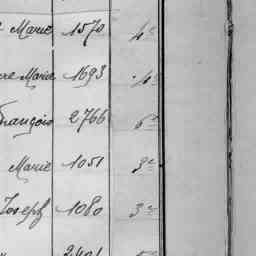 Marie 1570 4e
re Marie 1693 4e
François 2766 6e
Marie 1051 3e
Joseph 1080 3e
2401 5e